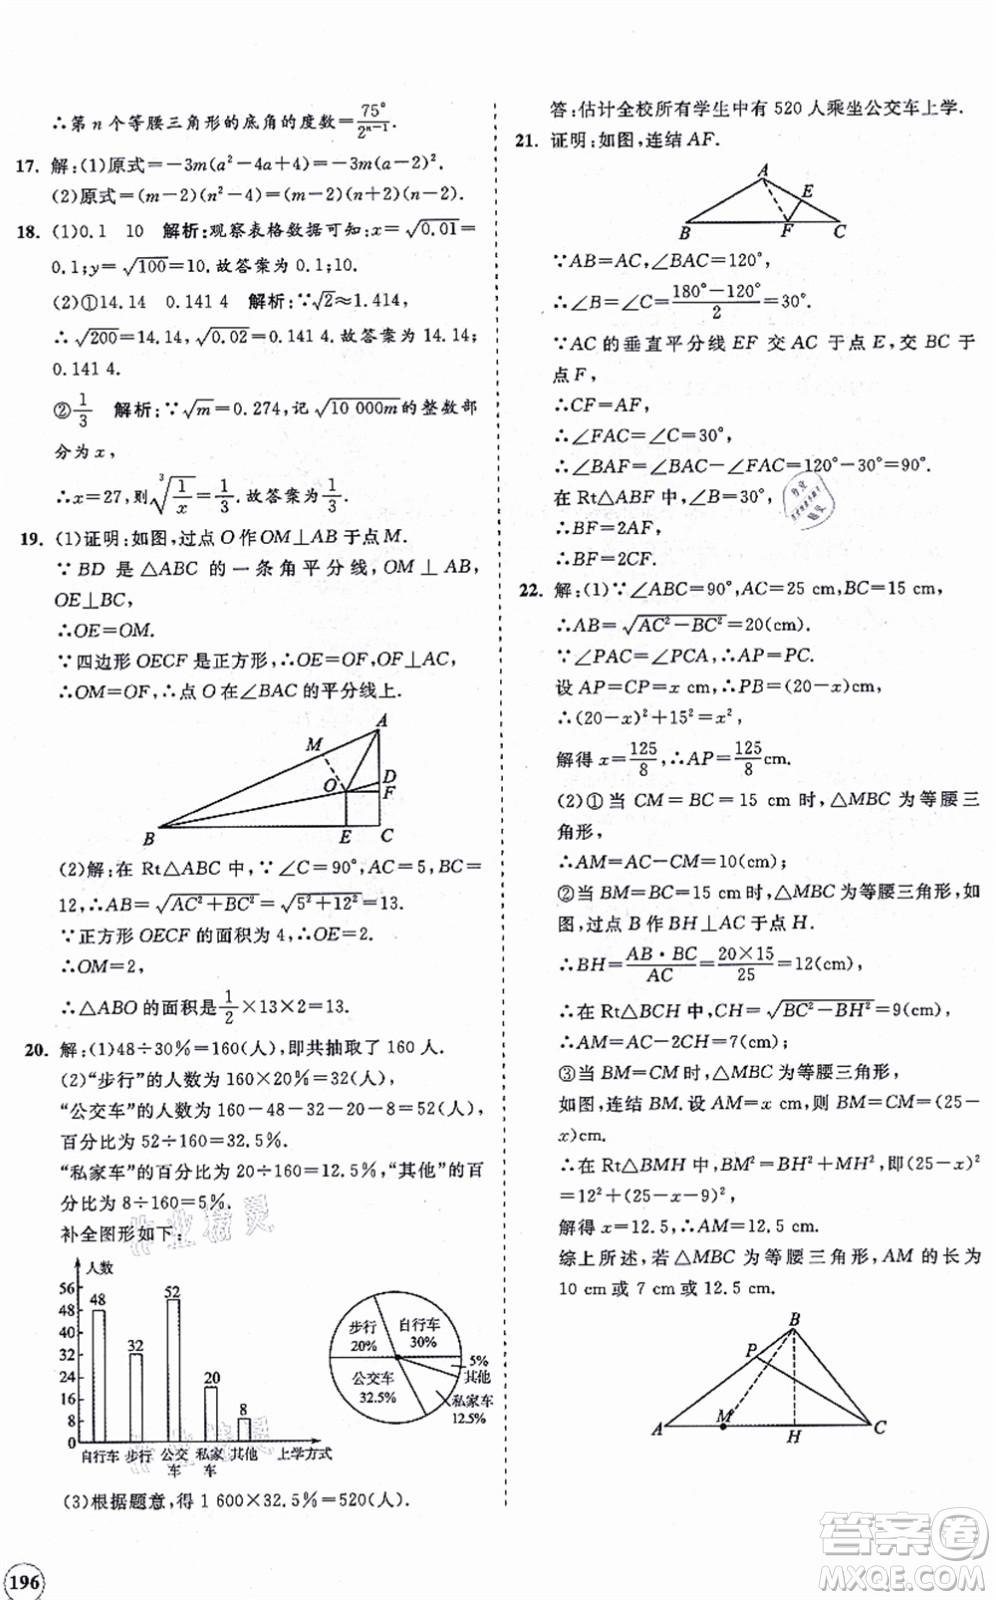 ∴第 n 个等腰三角形的底角的度数=75°/2ⁿ⁻¹.
17. 解:(1)原式=-3m(a²-4a+4)=-3m(a-2)².
(2)原式=(m-2)(n²-4)=(m-2)(n+2)(n-2).
18. (1)0.1 10 解析:观察表格数据可知:x=√0.01=
0.1;y=√100=10.故答案为 0.1;10.
(2)①14.14 0.141 4 解析:∵√2≈1.414,
∴√200=14.14,√0.02=0.141 4.故答案为 14.14;
0.141 4.
②1/3 解析:∵√m=0.274,记√10 000m的整数部
分为 x,
∴x=27,则∛(1/x)=1/3.故答案为1/3.
19. (1)证明:如图,过点 O 作 OM⊥AB 于点 M.
∵BD 是△ABC 的一条角平分线,OM⊥AB,
OE⊥BC,
∴OE=OM.
∵四边形 OECF 是正方形,∴OE=OF,
∴OM=OF,∴点 O 在∠BAC 的平分线上.
A
M
O
D
F
B
E
C
(2)解:在 Rt△ABC 中,∵∠C=90°,AC=5,BC=
12,∴AB=√AC²+BC²=√5²+12²=13.
∵正方形 OECF 的面积为 4,∴OE=2.
∴OM=2,
∴△ABO 的面积是1/2×13×2=13.
20. 解:(1)48÷30%=160(人),即共抽取了 160 人.
(2)“步行”的人数为 160×20%=32(人),
“公交车”的人数为 160-48-32-20-8=52(人),
百分比为 52÷160=32.5%.
“私家车”的百分比为 20÷160=12.5%,“其他”的百
分比为 8÷160=5%.
补全图形如下:
人数
56
48
40
32
24
16
8
0
48
32
52
20
8
自行车 步行 公交车 私家车 其他 上学方式
步行 20%
自行车 30%
5% 其他
公交车 32.5%
私家车 12.5%
(3)根据题意,得 1 600×32.5%=520(人).
196
答:估计全校所有学生中有 520 人乘坐公交车上学.
21. 证明:如图,连结 AF.
A
E
B
F
C
∵AB=AC,∠BAC=120°,
∴∠B=∠C=(180°-120°)/2=30°.
∵AC 的垂直平分线 EF 交 AC 于点 E,交 BC 于
点 F,
∴CF=AF,
∴∠FAC=∠C=30°,
∴∠BAF=∠BAC-∠FAC=120°-30°=90°.
在 Rt△ABF 中,∠B=30°,
∴BF=2AF,
∴BF=2CF.
22. 解:(1)∵∠ABC=90°,AC=25 cm,BC=15 cm,
∴AB=√AC²-BC²=20(cm).
∵∠PAC=∠PCA,∴AP=PC.
设 AP=CP=x cm,∴PB=(20-x)cm,
∴(20-x)²+15²=x²,
解得 x=125/8,∴AP=125/8 cm.
(2)①当 CM=BC=15 cm 时,△MBC 为等腰三
角形,
∴AM=AC-CM=10(cm);
②当 BM=BC=15 cm 时,△MBC 为等腰三角形,如
图,过点 B 作 BH⊥AC 于点 H.
∴BH=AB·BC/AC=20×15/25=12(cm),
∴在 Rt△BCH 中,CH=√BC²-BH²=9(cm),
∴AM=AC-2CH=7(cm);
③当 BM=CM 时,△MBC 为等腰三角形,
如图,连结 BM.设 AM=x cm,则 BM=CM=(25-
x)cm.
∴在 Rt△BMH 中,BM²=BH²+MH²,即(25-x)²
=12²+(25-x-9)²,
解得 x=12.5,∴AM=12.5(cm).
综上所述,若△MBC 为等腰三角形,AM 的长为
10 cm 或 7 cm 或 12.5 cm.
B
P
A
M
H
C
答案卷
MXQE.COM